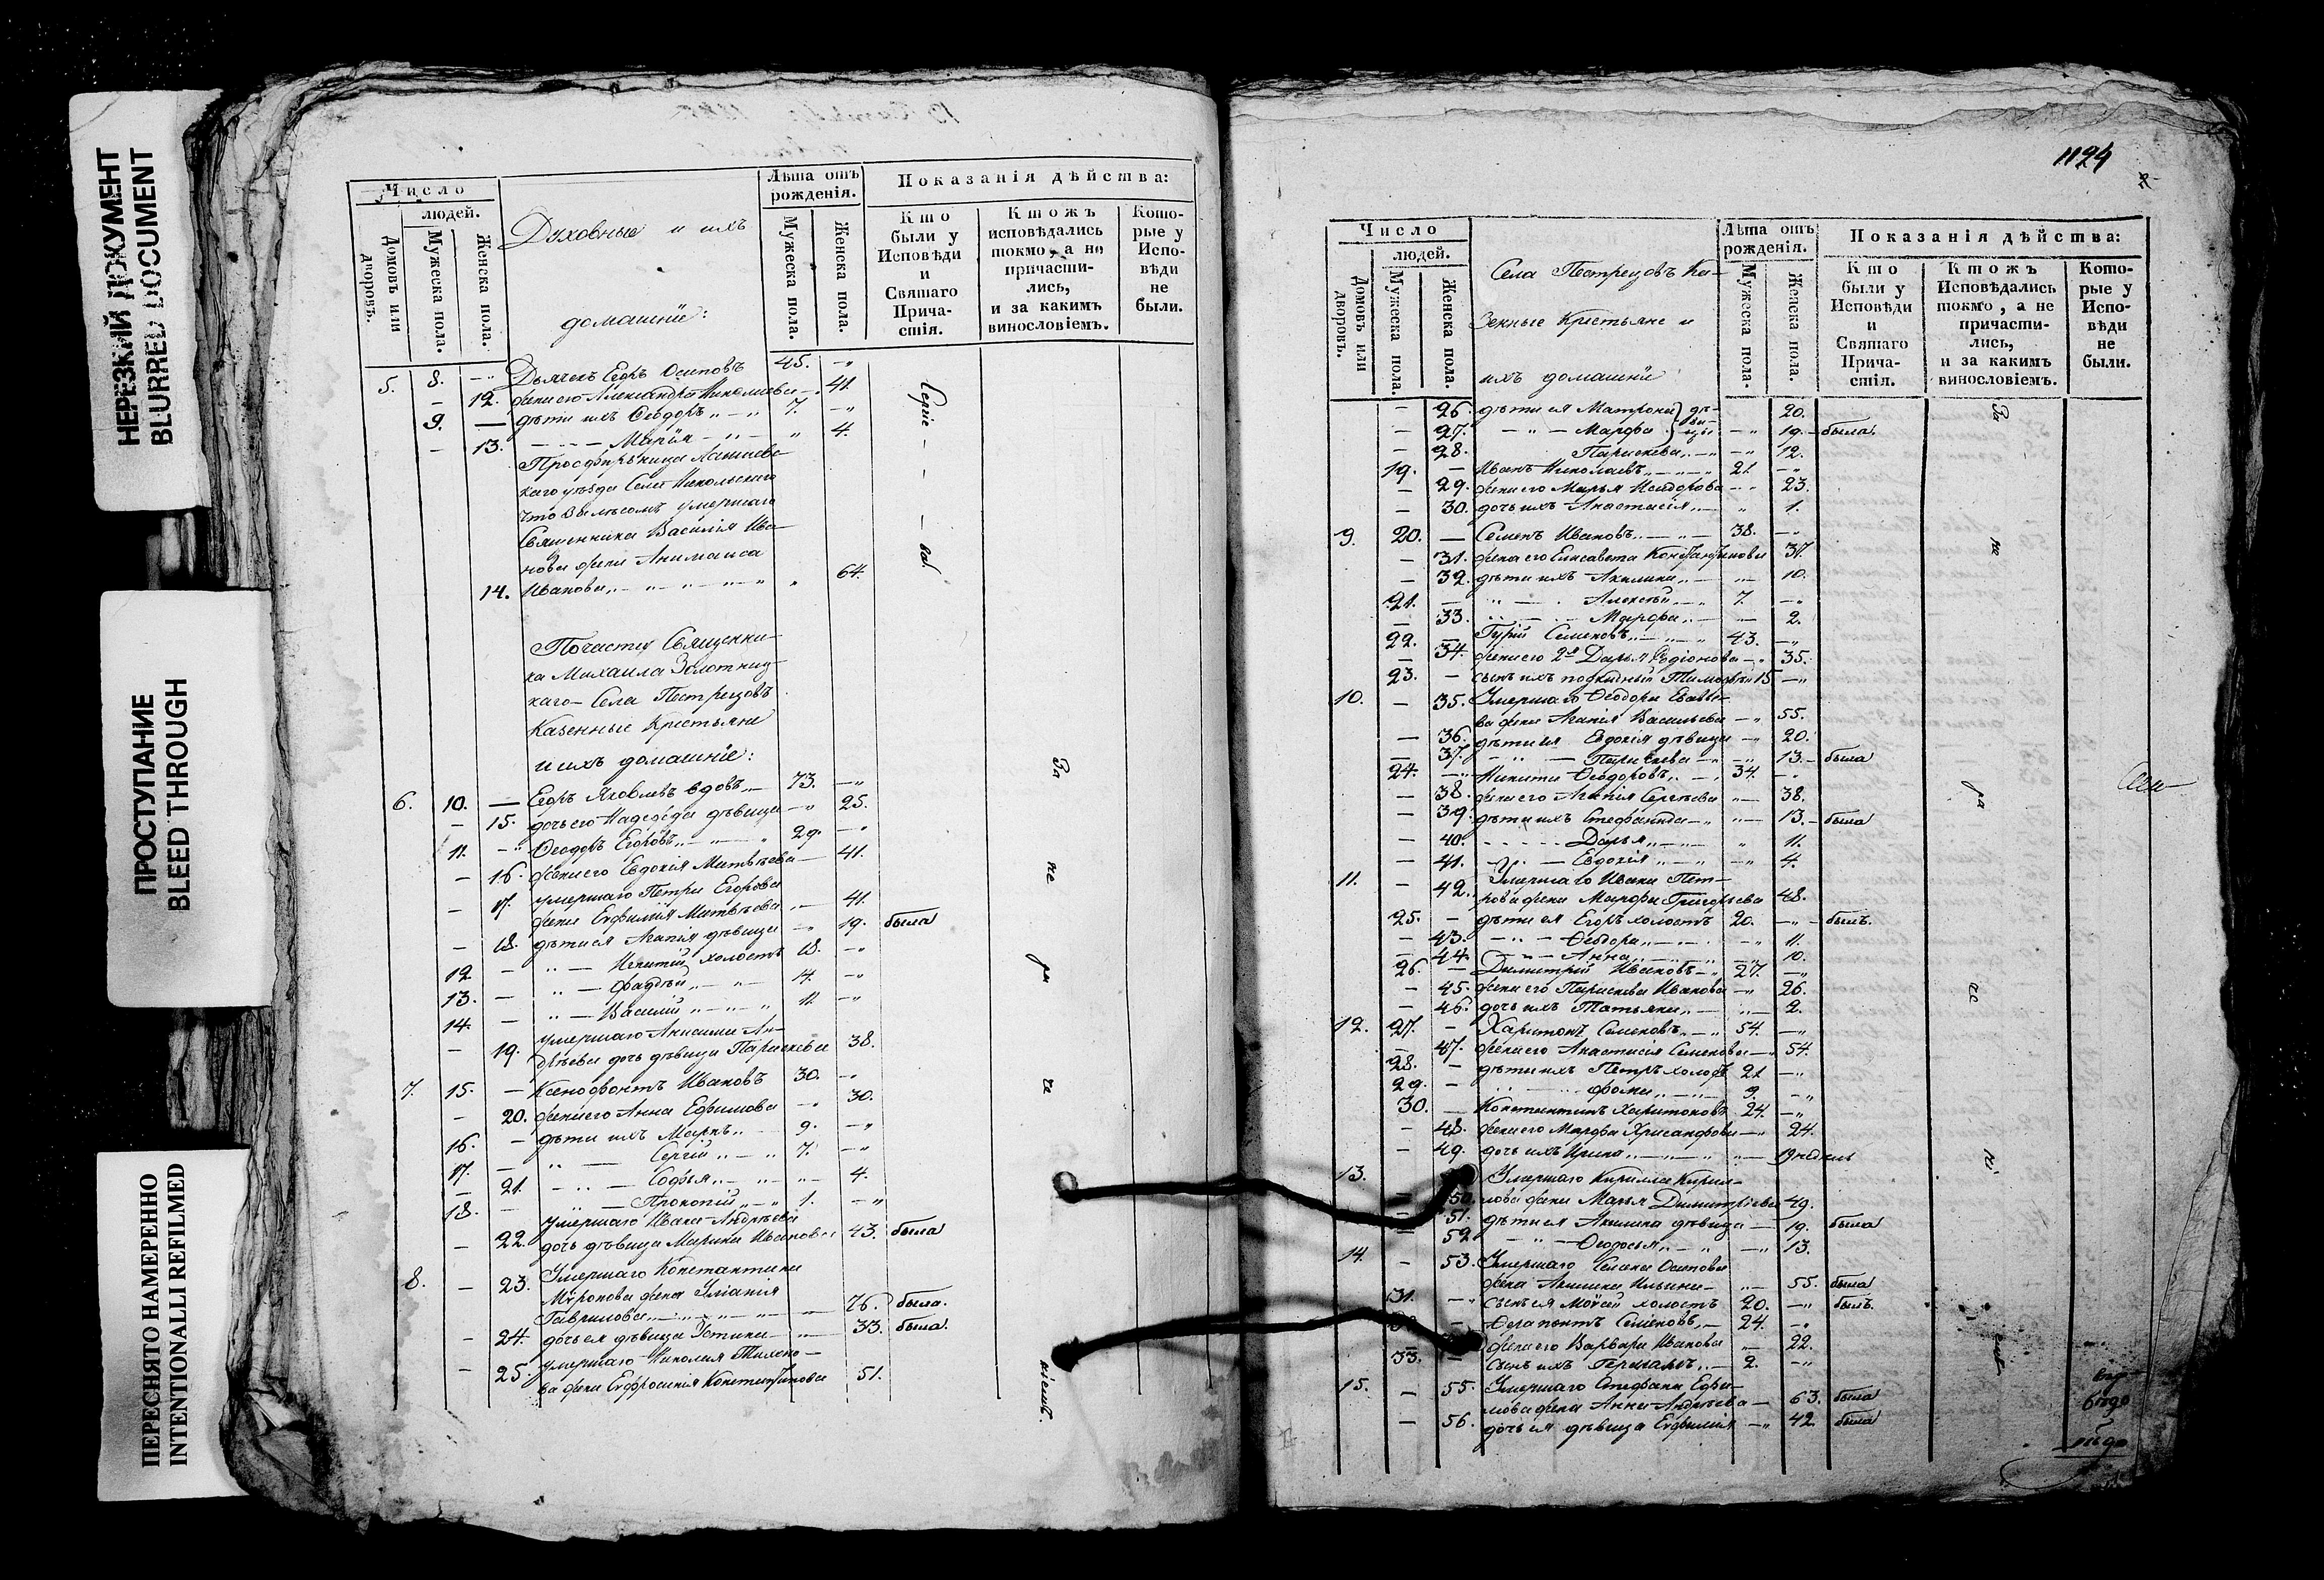 НЕРЕЗКИЙ ДОКУМЕНТ
BLURRED DOCUMENT
ПРОСТУПАНИЕ
BLEED THROUGH
ПЕРЕСНЯТО НАМЕРЕННО
INTENTIONALLI REFILMED
Число
людей.
Домовъ или дворовъ.
Мужеска пола.
Женска пола.
Духовные и ихъ
домашнiе:
Лѣта отъ рожденiя.
Мужеска пола.
Женска пола.
Показанiя дѣйства:
Кто были у Исповѣди и Святаго Причастiя.
Ктожъ исповѣдались токмо, а не причастились, и за какимъ винословiемъ.
Которые у Исповѣди не были.
5. 8. Дьячекъ Егоръ Осиповъ 45.
12. жена его Александра Николаева 41.
9. дѣти ихъ Ѳеодоръ 7.
13. Марiя 4.
Просфирница Лаишев-
каго уѣзда Села Никольскаго
умершаго
Священника Василiя Ива-
нова жена Анимаиса
14. Иванова 64.
По части Священни-
ка Михаила Золотниц-
каго Села Пестрецовъ
Казенные Крестьяне
и ихъ домашнiе:
6. 10. Егоръ Яковлевъ вдовъ 73.
15. дочь его Надежда дѣвица 25.
11. Ѳеодоръ Егоровъ 29.
16. жена его Евдокiя Матвѣева 41.
17. умершаго Петра Егорова
жена Евфимiя Матвѣева 41.
18. дѣти ея Агапiя дѣвица 19. была
12. Игнатiй холостъ 18.
13. Фаддѣй 14.
14. Василiй 11.
умершаго Анисима Ан-
19. дрѣева дочь дѣвица Параскева 38.
7. 15. Ксенофонтъ Ивановъ 30.
20. жена его Анна Ефимова 30.
16. дѣти ихъ Маркъ 9.
17. Сергiй 7.
21. Софья 4.
18. Прокопiй 1.
умершаго Ивана Андрѣева
22. дочь дѣвица Марина Иванова 43. была
8. 23. Умершаго Константина
Мѵронова жена Улiанiя
Гаврилова 76. была.
24. дочь ея дѣвица Устина 33. была.
25. умершаго Николая Тихоно-
ва жена Евфросинiя Константинова 51.
1124
Число
людей.
Домовъ или дворовъ.
Мужеска пола.
Женска пола.
Села Пестрецовъ Ка-
зенные Крестьяне и
ихъ домашнiе
Лѣта отъ рожденiя.
Мужеска пола.
Женска пола.
Показанiя дѣйства:
Кто были у Исповѣди и Святаго Причастiя.
Ктожъ Исповѣдались токмо, а не причастились, и за какимъ винословiемъ.
Которые у Исповѣди не были.
26. дѣти ея Матрона } дѣ- 20.
27. Марфа } вицы 19. была.
28. Параскева 12.
19. Иванъ Николаевъ 21.
29. жена его Марья Исидорова 23.
30. дочь ихъ Анастасiя 1.
9. 20. Семенъ Ивановъ 38.
31. жена его Елисавета Константинова 37.
32. дѣти ихъ Акилина 10.
21. Алексѣй 7.
33. Марфа 2.
22. Гурiй Семеновъ 43.
34. жена его 2я Дарья Родiонова 35.
23. сынъ ихъ подкидный Тимофѣй 15
10. 35. Умершаго Ѳеодора Савве-
ва жена Агапiя Васильева 55.
36. дѣти ея Евдокiя дѣвица 20.
37. Параскева 13. была
24. Никита Ѳеодоровъ 34.
38. жена его Агапiя Сергѣева 38.
39. дѣти ихъ Стефанида 13. была
40. Дарья 11.
41. Евдокiя 4.
11. Умершаго Ивана Пет-
42. рова жена Марфа Григорьева 48.
25. дѣти ея Егоръ холостъ 20. былъ.
43. Ѳеодора 11.
44. Анна 10.
26. Димитрiй Ивановъ 27.
45. жена его Параскева Иванова 26.
46. дочь ихъ Татьяна 2.
12. 27. Харитонъ Семеновъ 54.
47. жена его Анастасiя Семенова 54.
28. дѣти ихъ Петръ холостъ 21
29. Фома 9.
30. Константинъ Харитоновъ 24.
48. жена его Марфа Хрисанфова 24.
49. дочь ихъ Ирина 19 недѣль
13. Умершаго Кирилла Кирил-
50. лова жена Марья Димитрiева 49.
51. дѣти ея Акилина дѣвица 19. была
52 Ѳеодосья 13.
14. 53. Умершаго Семена Осипова
жена Акилина Ильина 55. была
31. Сынъ ея Моисей холостъ 20. былъ.
Ѳерапонтъ Семеновъ 24.
жена его Варвара Иванова 22.
33. Сынъ ихъ Герман 2.
15. 55. Умершаго Стефана Ефи-
мова жена Анна Андрѣева 63. была
56. дочь ея дѣвица Евфимiя 42. была